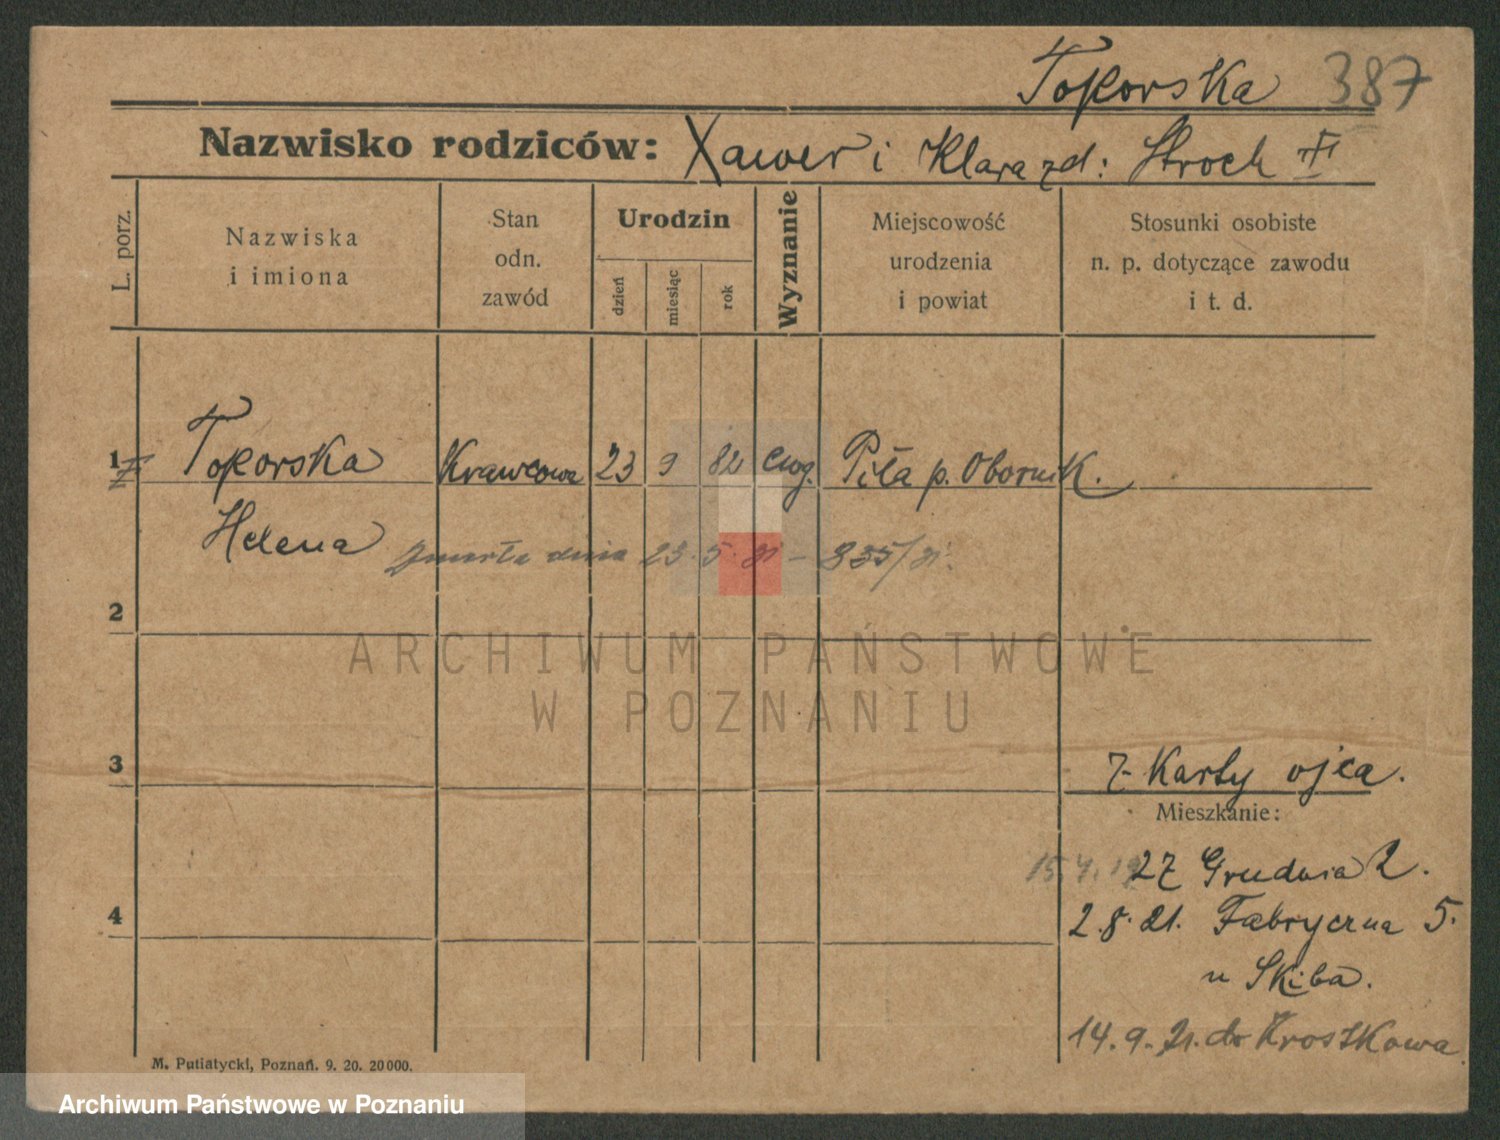 Toporska 387
Nazwisko rodziców: Xawer i Klara zd: Stroch
L. porz.
Nazwiska
i imiona
Stan
odn.
zawód
Urodzin
dzień
miesiąc
rok
Wyznanie
Miejscowość
urodzenia
i powiat
Stosunki osobiste
n. p. dotyczące zawodu
i t. d.
1 Toporska Krawcowa 23 9 82 ewg. Piła p. Obornik.
Helena
Zmarła dnia 23. 5. 31 – 835/31.
2
ARCHIWUM PAŃSTWOWE
W POZNANIU
3
Z Karty ojca.
Mieszkanie:
15.4.19 27 Grudnia 2.
4
2.8.21. Fabryczna 5.
u Skiba.
14.9.21. do Krostkowa
M. Putiatycki, Poznań. 9. 20. 20000.
Archiwum Państwowe w Poznaniu